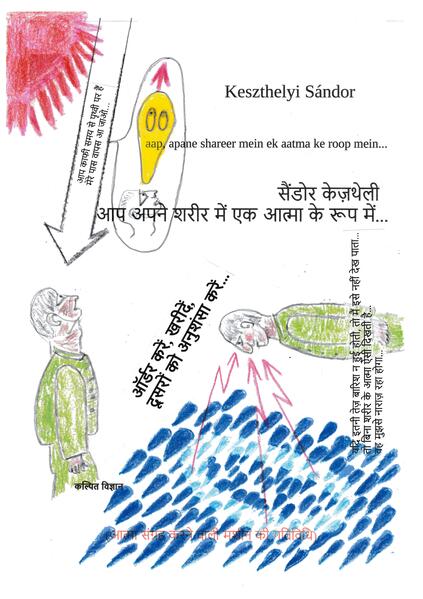 आप काफी समय से पृथ्वी पर हैं
मेरे पास वापस आ जाओ...
Keszthelyi Sándor
aap, apane shareer mein ek aatma ke roop mein...
सैंडोर केज़थेली
आप अपने शरीर में एक आत्मा के रूप में...
ऑर्डर करें, खरीदें,
दूसरों को अनुशंसा करें...
यदि इतनी तेज़ बारिश न हुई होती, तो मैं इसे नहीं देख पाता...
तो बिना शरीर के आत्मा ऐसी दिखती है...
वह मुझसे नाराज़ रहा होगा...
कल्पित विज्ञान
(आत्मा संग्रह करने वाली मशीन की गतिविधि)